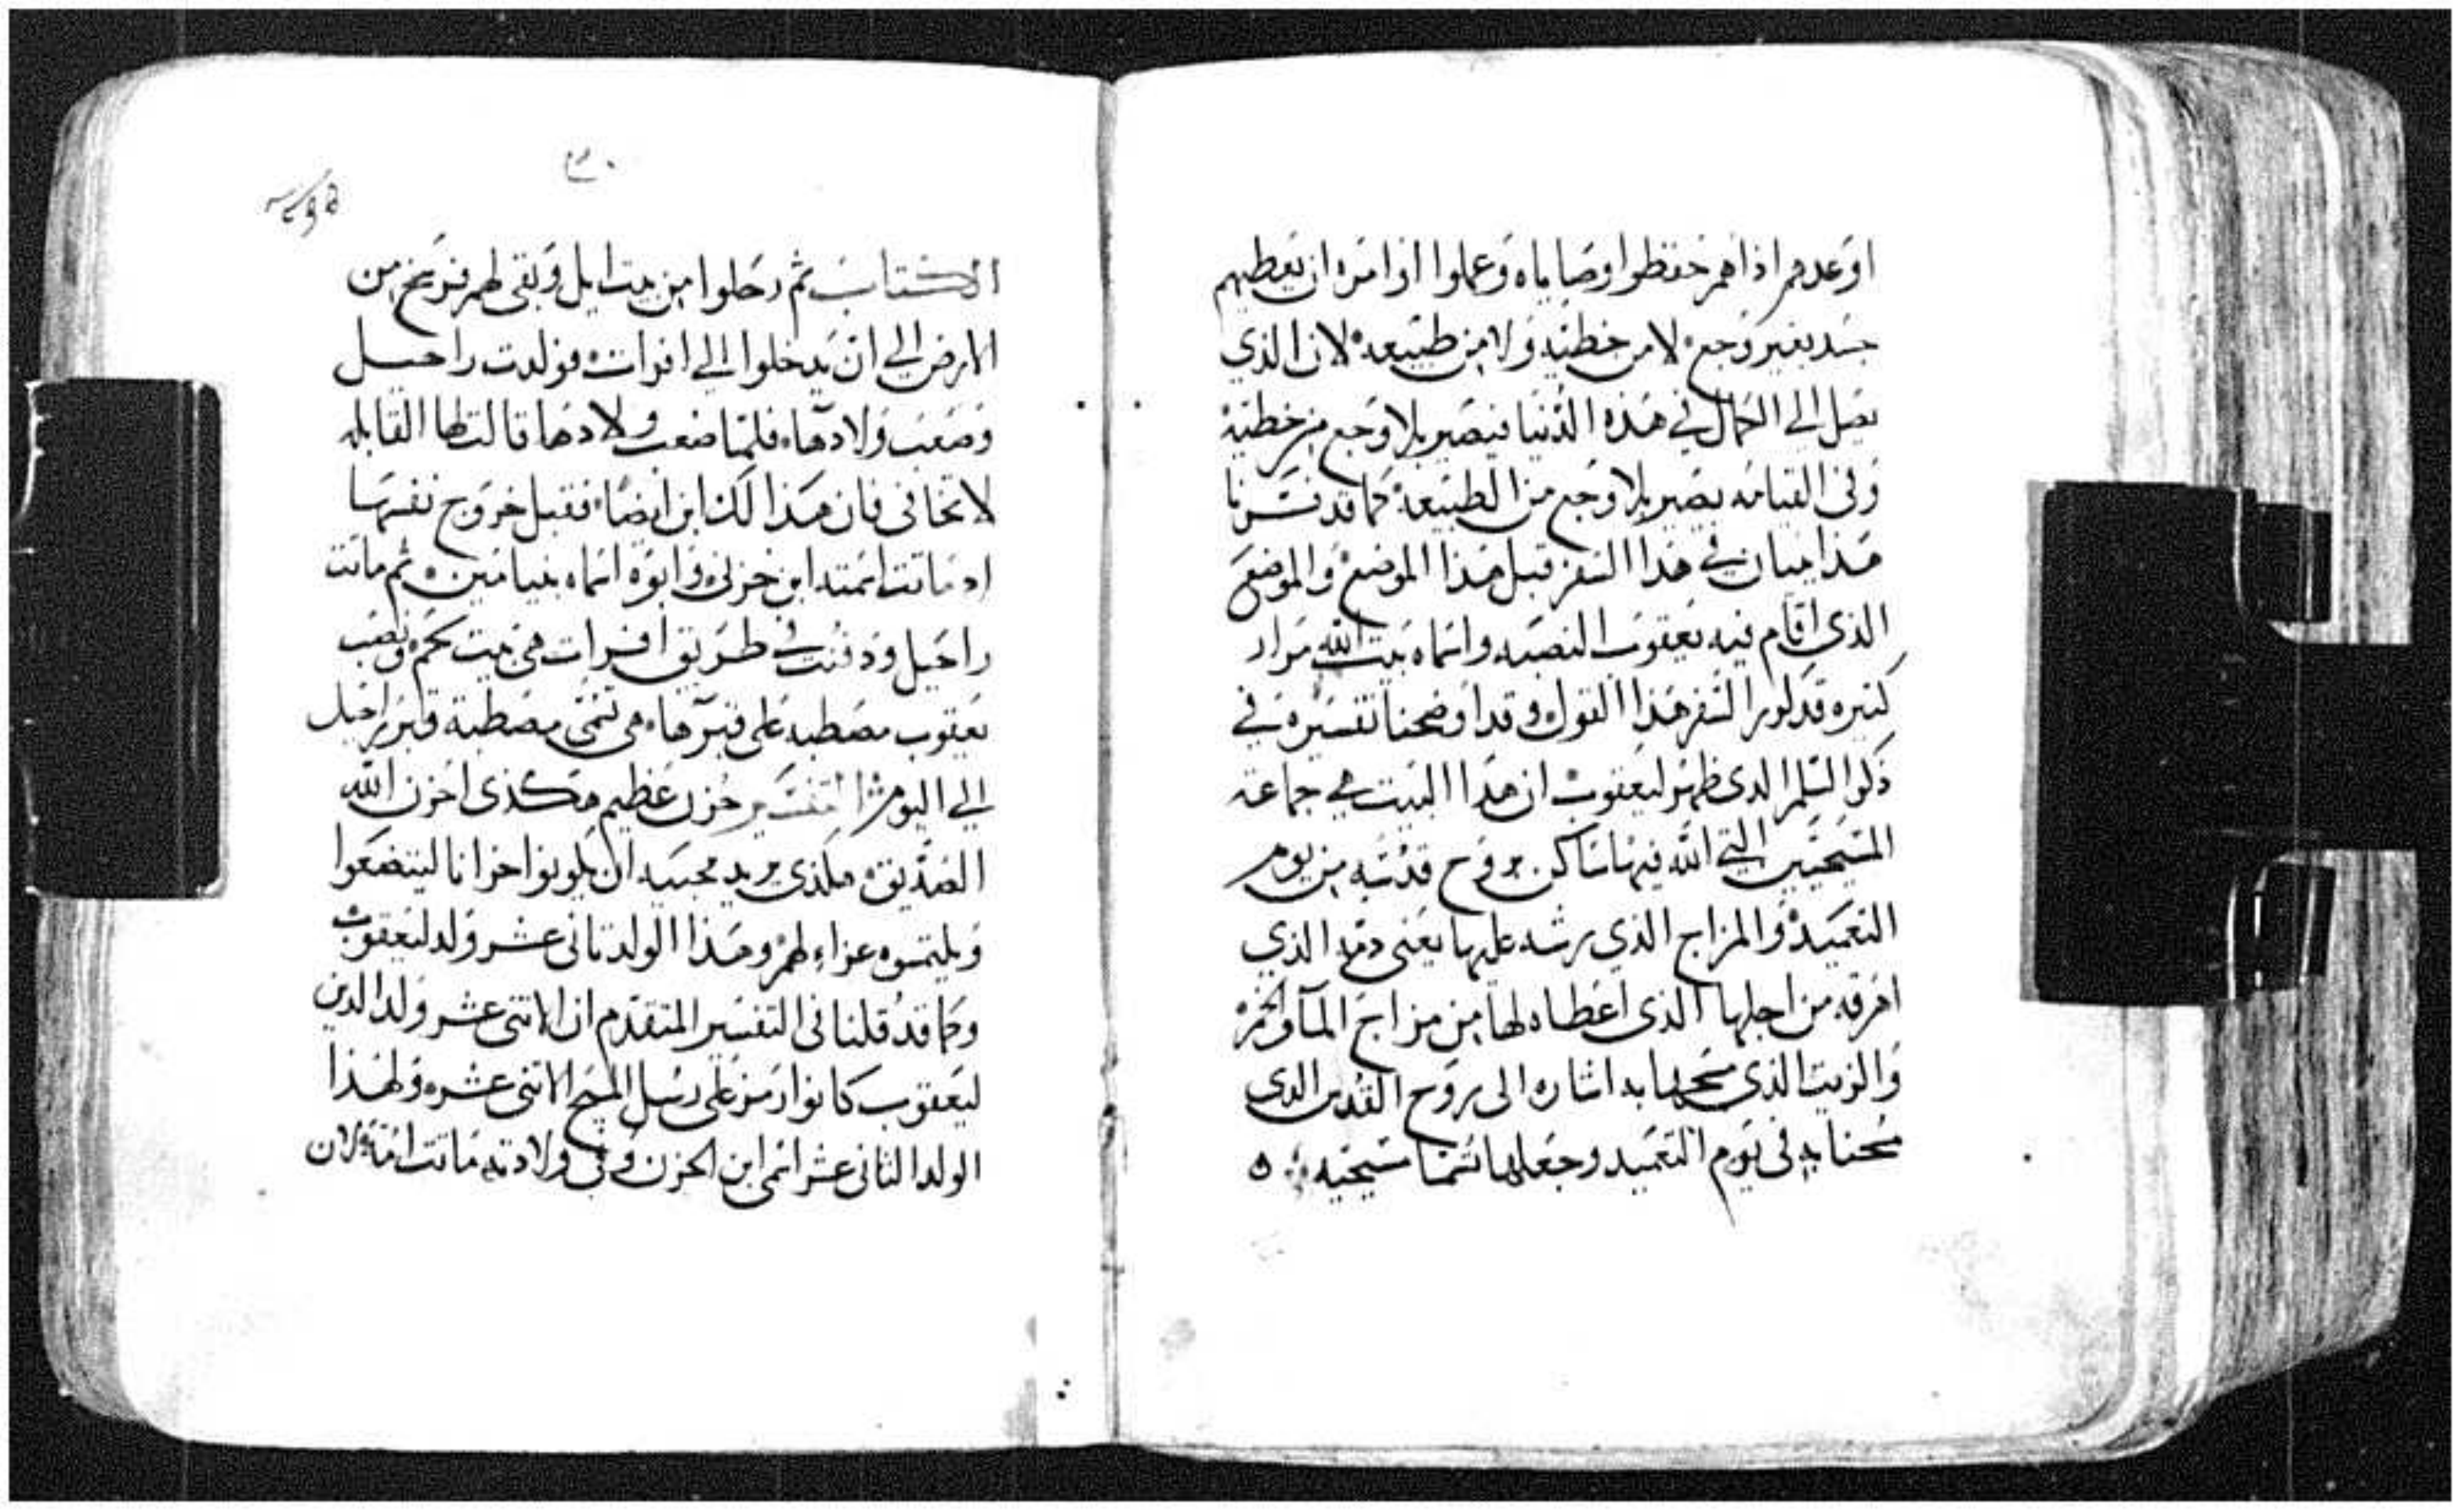 اوعدهم اذا هم حفظوا وصاياه وعملوا اوامره ان يعطيهم
جسد بغير وجع لا من خطيه ولا من طبيعه لان الذي
يصل الي الكمال في هذه الدنيا فيصير بلا وجع من خطيه
وفي القيامه يصير بلا وجع من الطبيعه كما قد فسرنا
هذا ميان في هذا السفر قبل هذا الموضع والموضع
الذي اقام فيه يعقوب النصبه واسماه بيت الله مرار
كثيره قد كرر السفر هذا القول وقد اوضحنا تفسيره في
ذكر السلم الذي ظهر ليعقوب ان هذا البيت هي جماعة
المسيحيين التي الله فيها ساكن بروح قدسه من يوم
التعميد والمزاج الذي رشه عليها يعني دمه الذي
اهرقه من اجلها الذي اعطاه لها من مزاج المآ والخمر
والزيت الذي مسحها به اشاره الي روح القدس الذي
مسحنا به في يوم التعميد وجعلها تسما مسيحيه
٣٠
الكتاب ثم رحلوا من بيت ايل وبقي لهم فرسخ من
الارض الي ان يدخلوا الي افرات فولدت راحيل
وصعب ولادها فلما صعب ولادها قالت لها القابله
لا تخافي فان هذا لك ابن ايضا فقبل خروج نفسها
اد ماتت اسمته ابن حزني وابوه اسماه بنيامين ثم ماتت
راحيل ودفنت في طريق افرات هي بيت لحم ونصب
يعقوب مصطبه علي قبرها هي تسمي مصطبة قبر راحيل
الي اليوم التفسير حزن عظيم هكذي احزن الله
الصديق هكذي يريد محبيه ان يكونوا حزانا ليتضعوا
ويلتمسوه عزاء لهم وهذا الولد تاني عشر ولد ليعقوب
وكما قد قلنا في التفسير المتقدم ان الاتني عشر ولد الذين
ليعقوب كانوا رمز علي رسل المسيح الاتني عشر ولهذا
الولد الثاني عشر اسمي ابن الحزن وفي ولادته ماتت امه لان